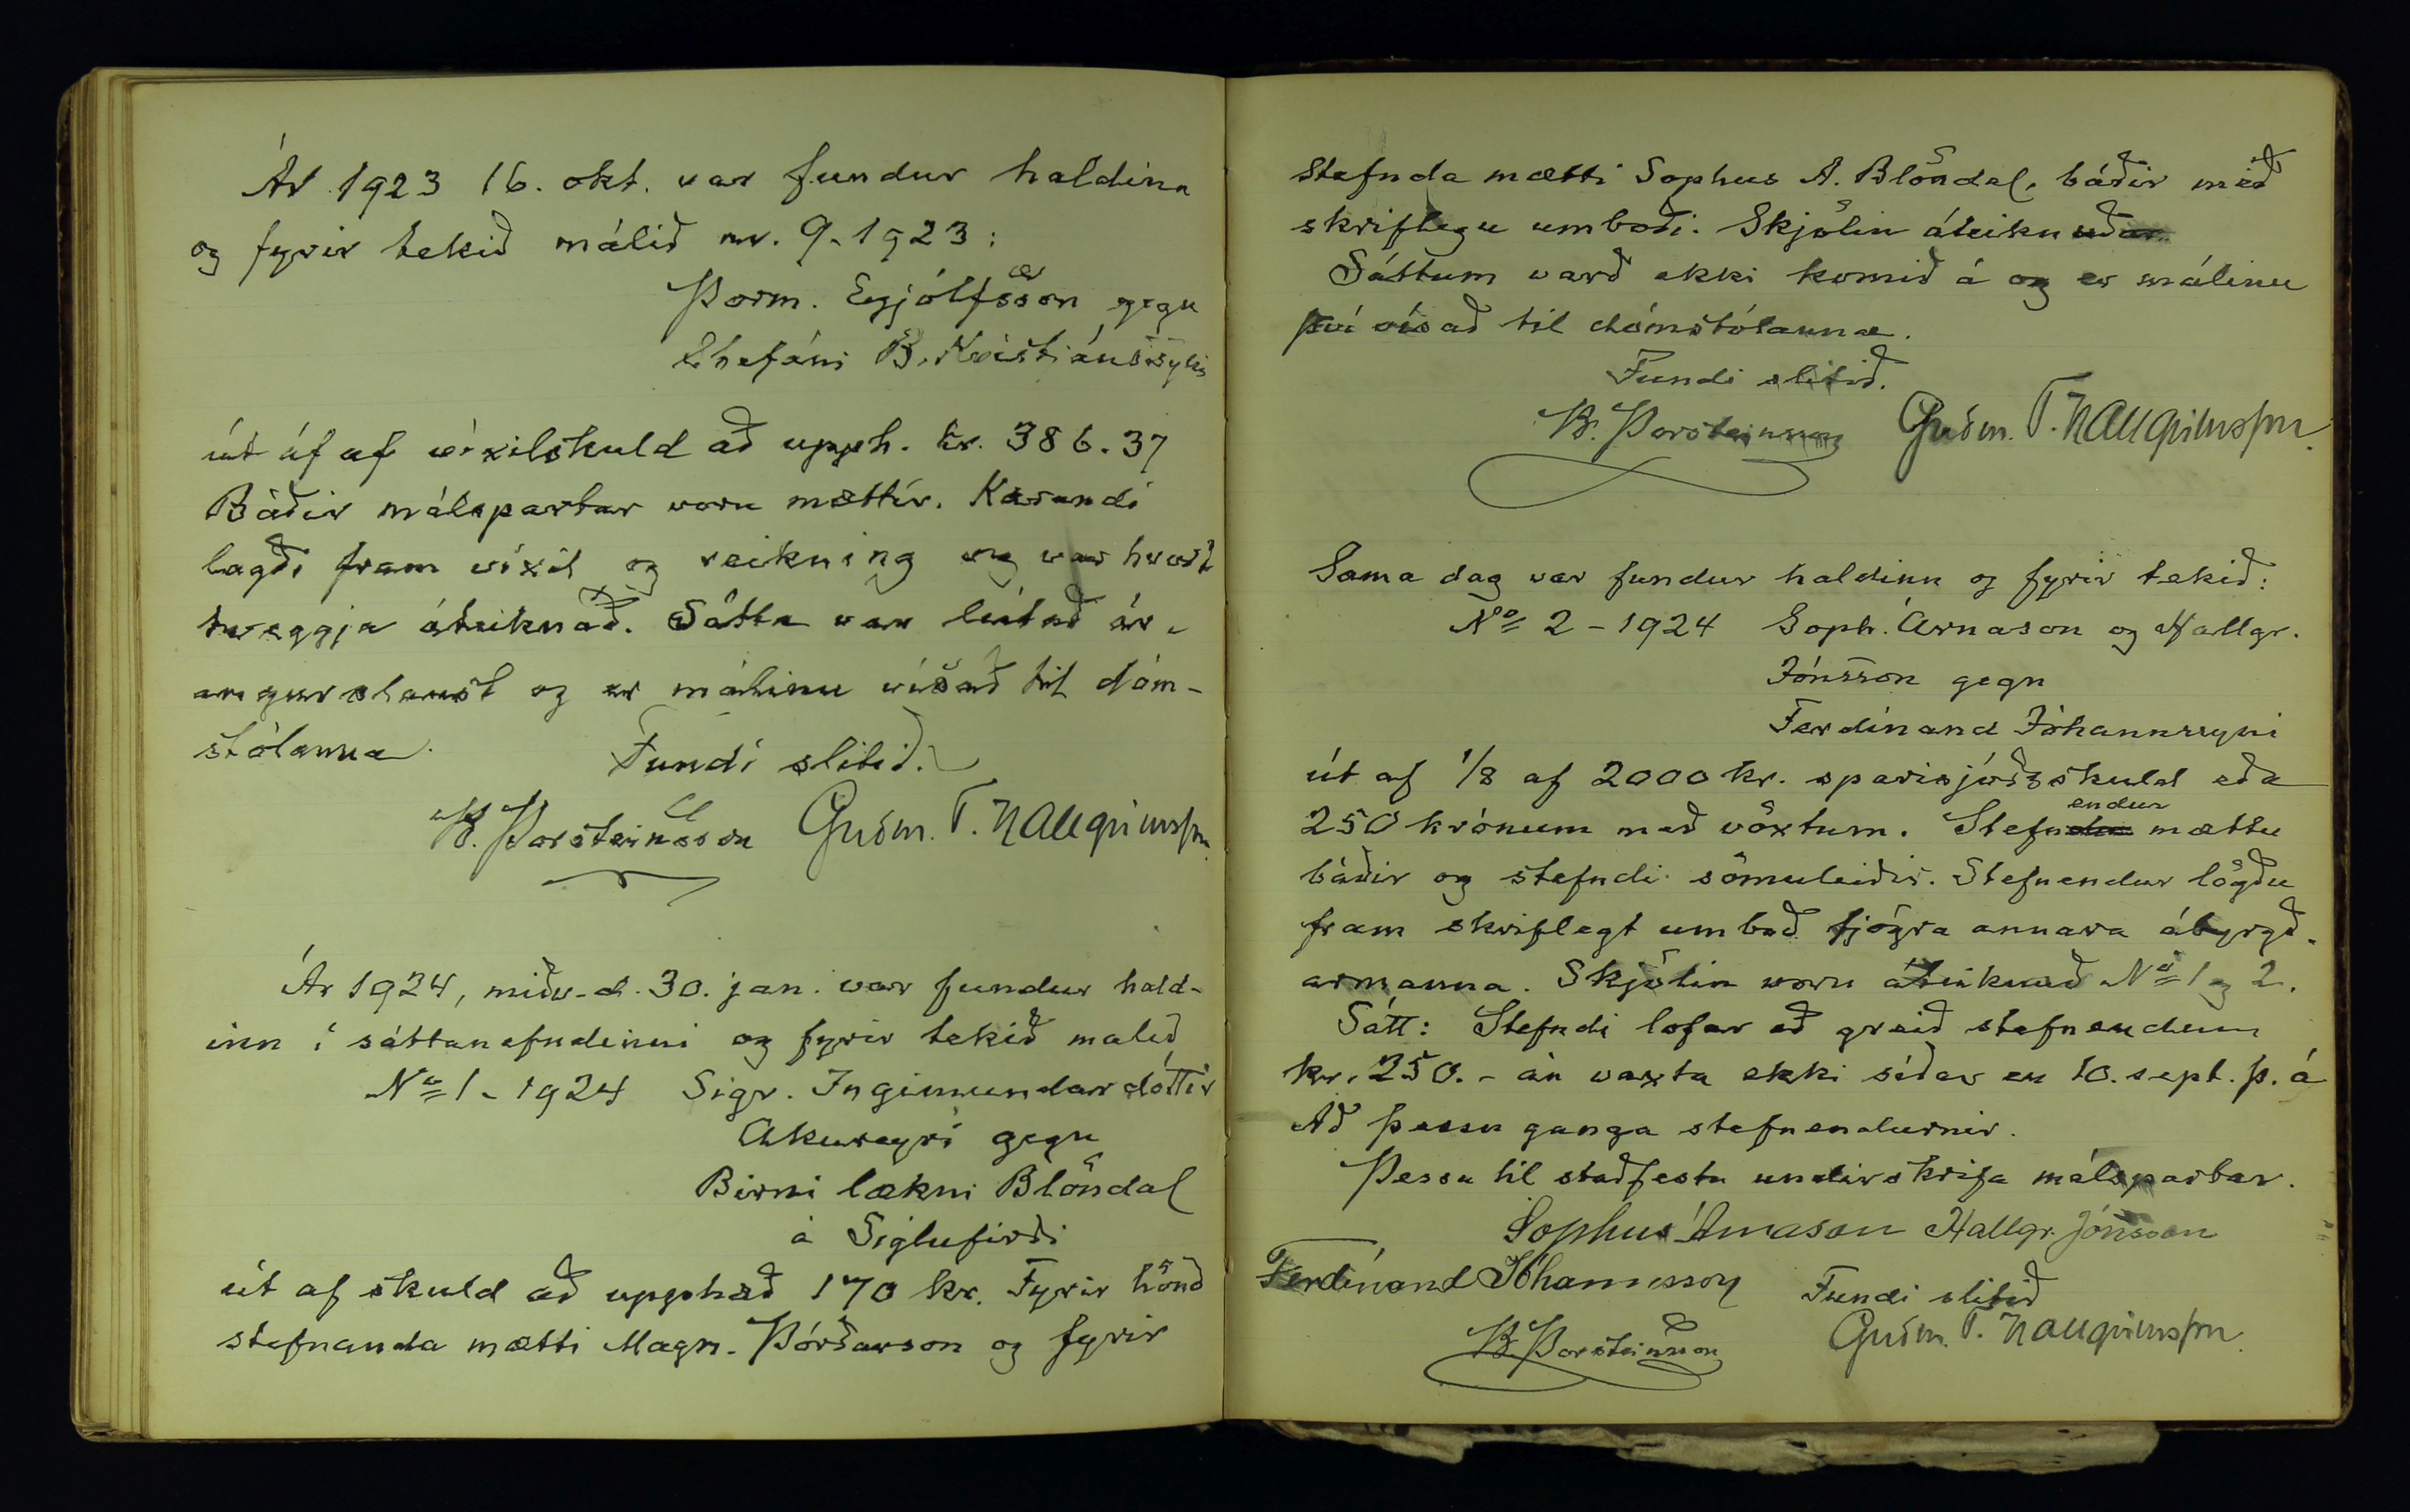 Ár 1923 16. okt. var fundur haldinn
og fyrir tekið málið nr. 9-1923:
Þorm. Eyjólfsson gegn
Stefáni B. Kristiánssyni
út af af víxilskuld að upph. kr. 386.37
Báðir málspartar voru mættir. Kærandi
lagði fram víxil og reikning og var hvort
tveggja áteiknað. Sátta var leitað ár-
angurslaust og er málinu vísað til dóm-
stólanna. Fundi slitið.
B. Þorsteinsson Guðm. T. Hallgrimsson
Ár 1924, miðv.d. 30. jan. var fundur hald-
inn í sáttanefndinni og fyrir tekið malið
No 1-1924 Sigr. Ingimundardóttir
Akureyri gegn
Birni lækni Blöndal
á Siglufirði
út af skuld að upphæð 170 kr. Fyrir hönd
stefnanda mætti Magn. Þórðarson og fyrir
stefnda mætti Sophus A. Blöndal, báðir með
skriflegu umboði. Skjölin áteiknuð
Sáttum varð ekki komið á og er málinu
því vísað til dómstólanna.
Fundi slitið.
B. Þorsteinsson Guðm. T. Hallgrimsson
Sama dag var fundur haldinn og fyrir tekið:
No 2-1924 Soph. Árnason og Hallgr.
Jónsson gegn
Ferdínand Jóhannssyni
út af 1/8 af 2000 kr. sparisjóðsskuld eða
250 krónum með vöxtum. Stefnendur mættu
báðir og stefndi sömuleiðis. Stefnendur lögðu
fram skriflegt umboð fjögra annara ábyrgð-
armanna. Skjölin voru áteiknuð No 1 og 2.
Sátt: Stefndi lofar að greið stefnendum
kr. 250.- án vaxta ekki síðar en 10. sept. þ. á
Að þessu ganga stefnendurnir.
Þessu til staðfestu undirskrifa málspartar.
Sophus Árnason Hallgr. Jónsson
Ferdínand Jóhannsson Fundi slitið
B. Þorsteinsson Guðm. T. Hallgrimsson